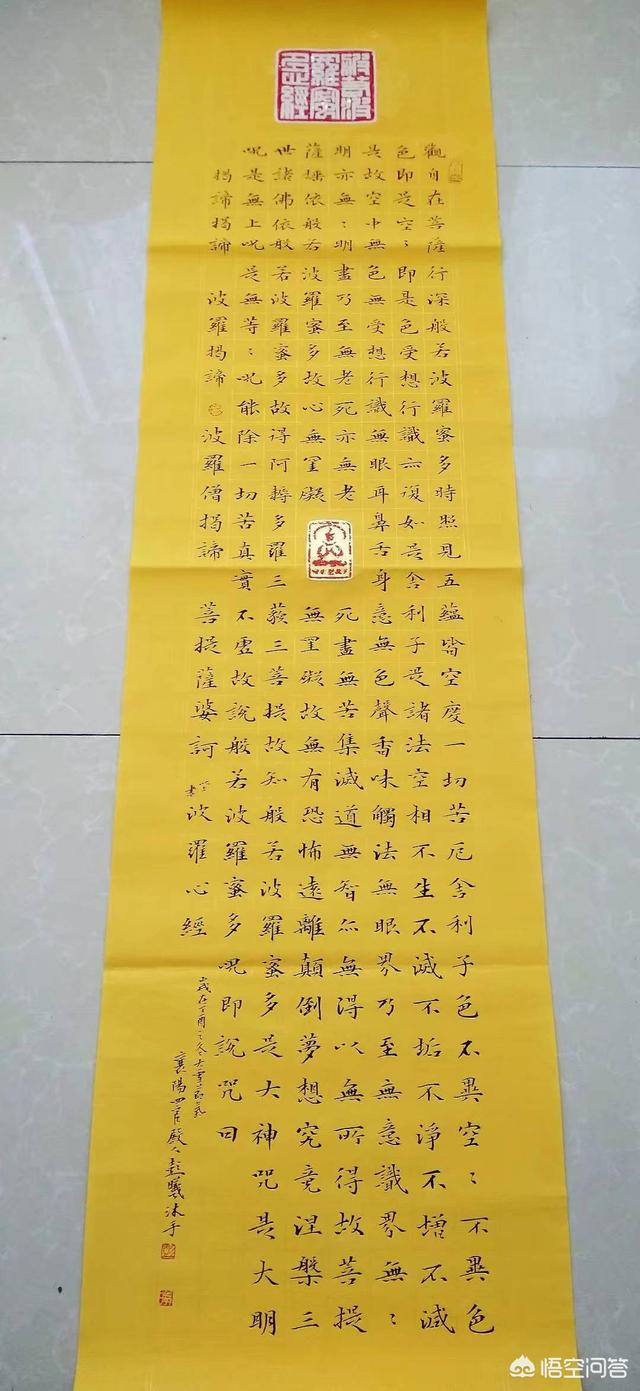 般若波羅蜜多心經
觀自在菩薩行深般若波羅蜜多時照見五蘊皆空度一切苦厄舍利子色不異空〻不異色
色即是空〻即是色受想行識亦復如是舍利子是諸法空相不生不滅不垢不淨不增不減
是故空中無色無受想行識無眼耳鼻舌身意無色聲香味觸法無眼界乃至無意識界無〻
明亦無〻明盡乃至無老死亦無老死盡無苦集滅道無智亦無得以無所得故菩提
薩埵依般若波羅蜜多故心無罣礙無罣礙故無有恐怖遠離顛倒夢想究竟涅槃三
世諸佛依般若波羅蜜多故得阿耨多羅三藐三菩提故知般若波羅蜜多是大神咒是大明
咒是無上咒是無等〻咒能除一切苦真實不虛故說般若波羅蜜多咒即說咒曰
揭諦揭諦 波羅揭諦 波羅僧揭諦 菩提薩婆訶 波羅心經
歲在丁酉之冬大雪節氣
襄陽 沐手
悟空问答